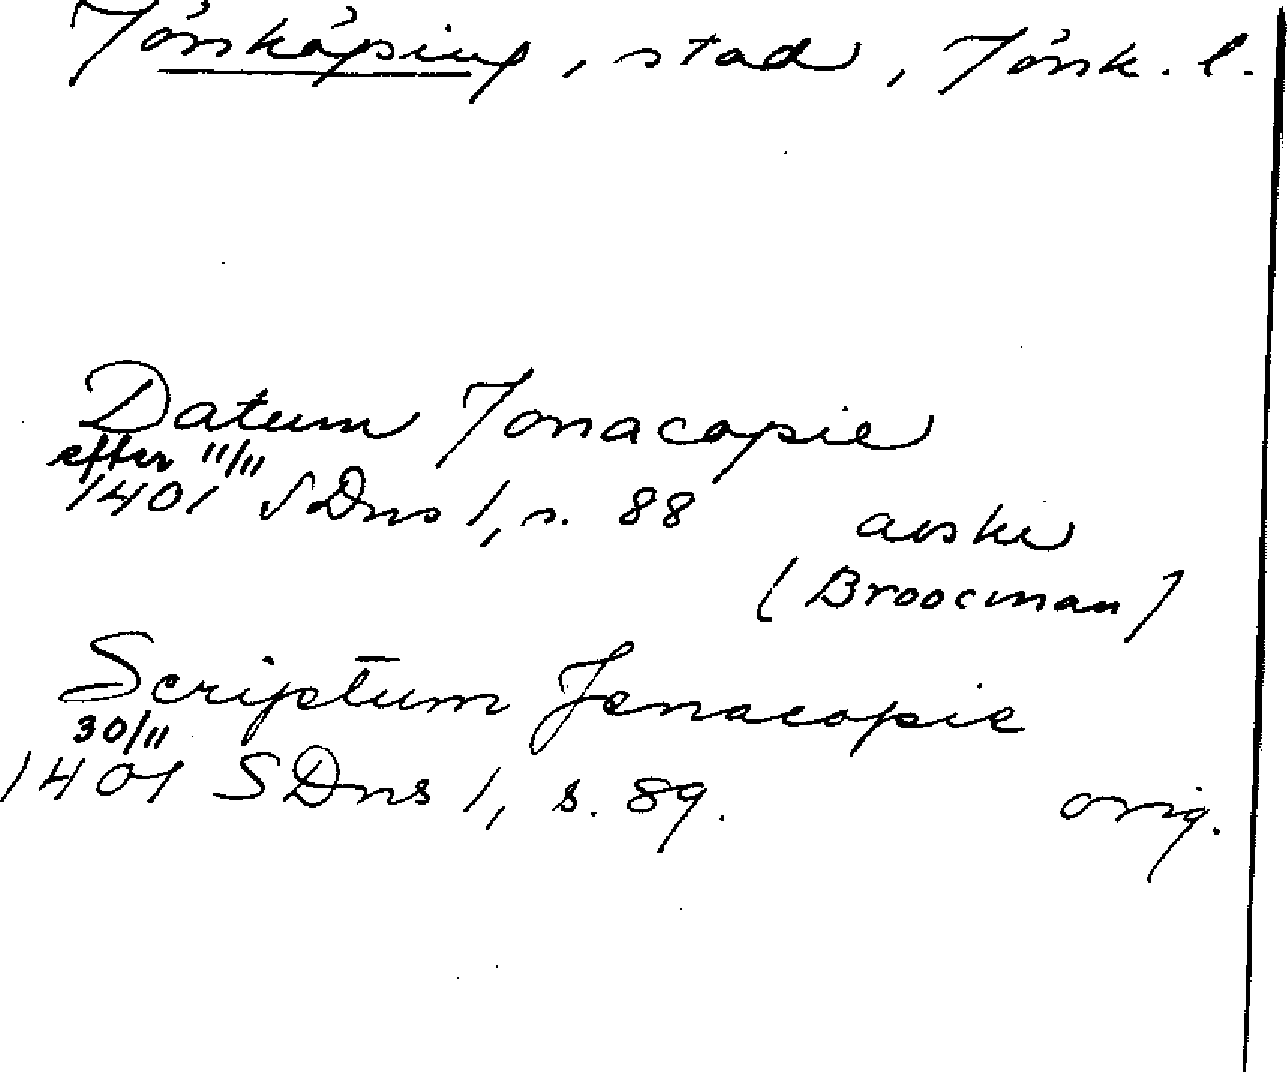 Jönköping, stad, Jönk. l.
Datum Jonacopie
efter 11/11
1401 SDns 1, s. 88 avskr
(Broocman)
Scriptum Jenacopie
30/11
1401 SDns 1, s. 89. orig.